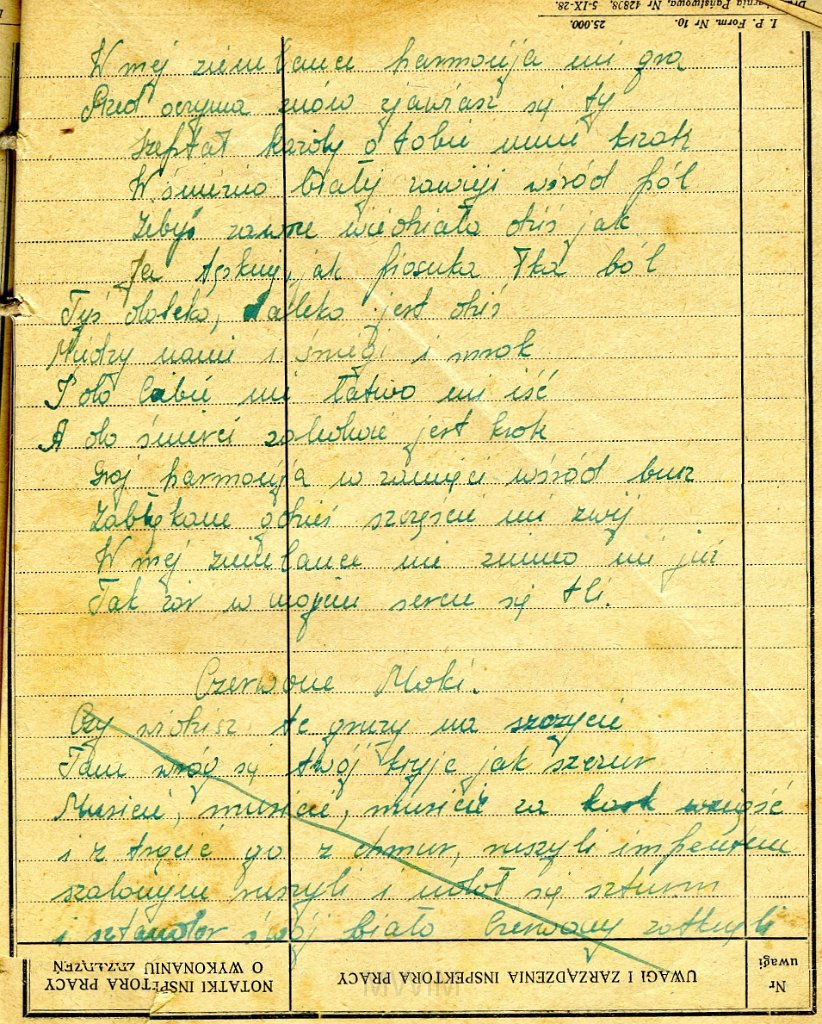 I. P. Form. Nr 10. 25.000.
Państwowa, Nr 42898. 5-IX-28.
W mej ziemlance harmonija mi gra
Przed oczyma znów zjawiasz się ty
Szeptał każdy o tobie mnie krzak
W śnieżno białej zawieji wśród pól
Żebyś zawsze wiedziała dziś jak
Ja tęsknię, jak piosnka łka ból
Tyś daleko, daleko jest dziś
Między nami i śniegi i mrok
I do Ciebie nie łatwo mi iść
A do śmierci zaledwie jest krok
Graj harmonija w zamięci wśród burz
Zabłąkane gdzieś szczęście mi zwij
W mej ziemlance nie zimno mi już
Tak żar w mojem sercu się tli.
Czerwone Maki.
Czy widzisz te gruzy na szczycie
Tam wróg się twój kryje jak szczur
Musicie, musicie, musicie za kark wziąść
i z trącić go z chmur, ruszyli impentem
szalonym ruszyli i udał się szturm
i sztandar swój biało Czerwony zatknęli
NOTATKI INSPEKTORA PRACY O WYKONANIU ZARZĄDZEŃ
UWAGI I ZARZĄDZENIA INSPEKTORA PRACY
Nr uwagi